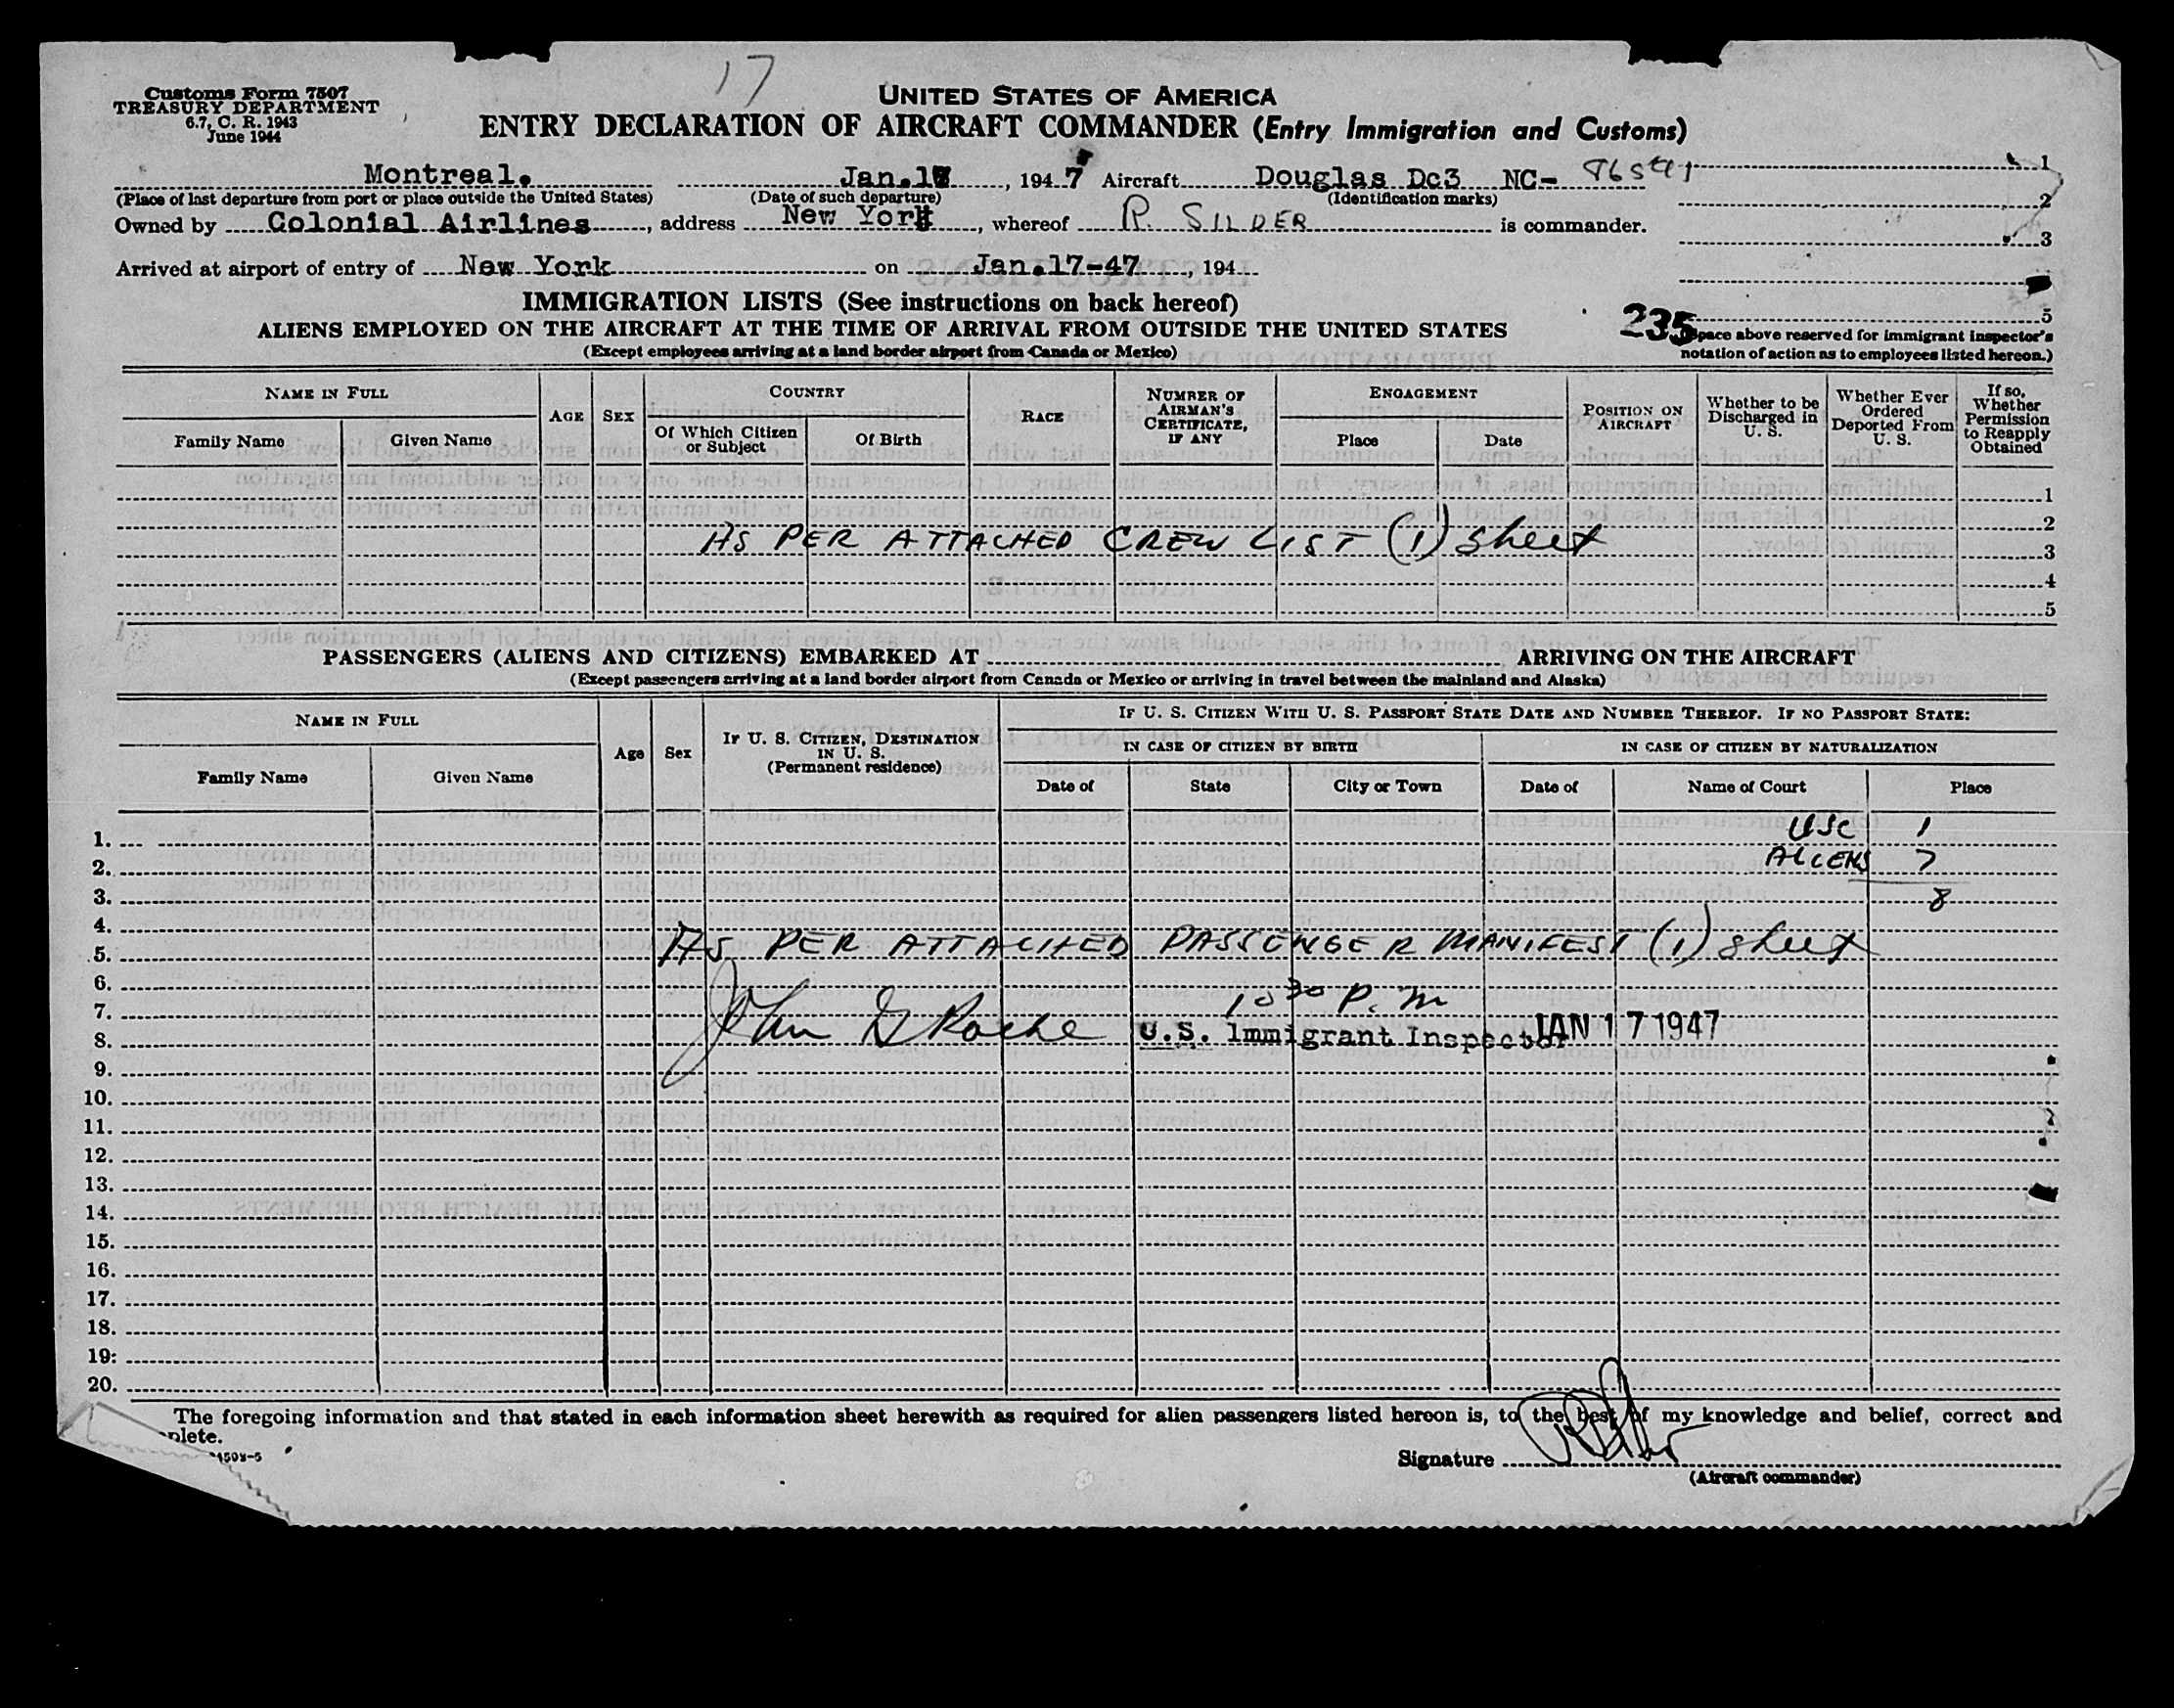 17
Customs Form 7507
TREASURY DEPARTMENT
6.7, C. R. 1943
June 1944
UNITED STATES OF AMERICA
ENTRY DECLARATION OF AIRCRAFT COMMANDER (Entry Immigration and Customs)
Montreal. Jan.17, 1947 Aircraft Douglas Dc3 NC-
(Place of last departure from port or place outside the United States) (Date of such departure) (Identification marks)
Owned by Colonial Airlines, address New York, whereof R. SILDER is commander.
Arrived at airport of entry of New York on Jan.17-47, 194
1
2
3
5
235
Space above reserved for immigrant inspector's
notation of action as to employees listed hereon.)
IMMIGRATION LISTS (See instructions on back hereof)
ALIENS EMPLOYED ON THE AIRCRAFT AT THE TIME OF ARRIVAL FROM OUTSIDE THE UNITED STATES
(Except employees arriving at a land border airport from Canada or Mexico)
NAME IN FULL
Family Name
Given Name
AGE
SEX
COUNTRY
Of Which Citizen or Subject
Of Birth
RACE
NUMBER OF AIRMAN'S CERTIFICATE, IF ANY
ENGAGEMENT
Place
Date
POSITION ON AIRCRAFT
Whether to be Discharged in U. S.
Whether Ever Ordered Deported From U. S.
If so, Whether Permission to Reapply Obtained
1
2
AS PER ATTACHED CREW LIST (1) sheet
3
4
5
PASSENGERS (ALIENS AND CITIZENS) EMBARKED AT ARRIVING ON THE AIRCRAFT
(Except passengers arriving at a land border airport from Canada or Mexico or arriving in travel between the mainland and Alaska)
NAME IN FULL
Family Name
Given Name
Age
Sex
IF U. S. CITIZEN, DESTINATION IN U. S.
(Permanent residence)
IF U. S. CITIZEN WITH U. S. PASSPORT STATE DATE AND NUMBER THEREOF. IF NO PASSPORT STATE:
IN CASE OF CITIZEN BY BIRTH
Date of
State
City or Town
IN CASE OF CITIZEN BY NATURALIZATION
Date of
Name of Court
Place
1. USC 1
2. ALIENS 7
3. 8
4.
5. AS PER ATTACHED PASSENGER MANIFEST (1) sheet
6.
7. 10 30 P.M
8. John G Roche U.S. Immigrant Inspector JAN 17 1947
9.
10.
11.
12.
13.
14.
15.
16.
17.
18.
19.
20.
The foregoing information and that stated in each information sheet herewith as required for alien passengers listed hereon is, to the best of my knowledge and belief, correct and
plete.
Signature
(Aircraft commander)